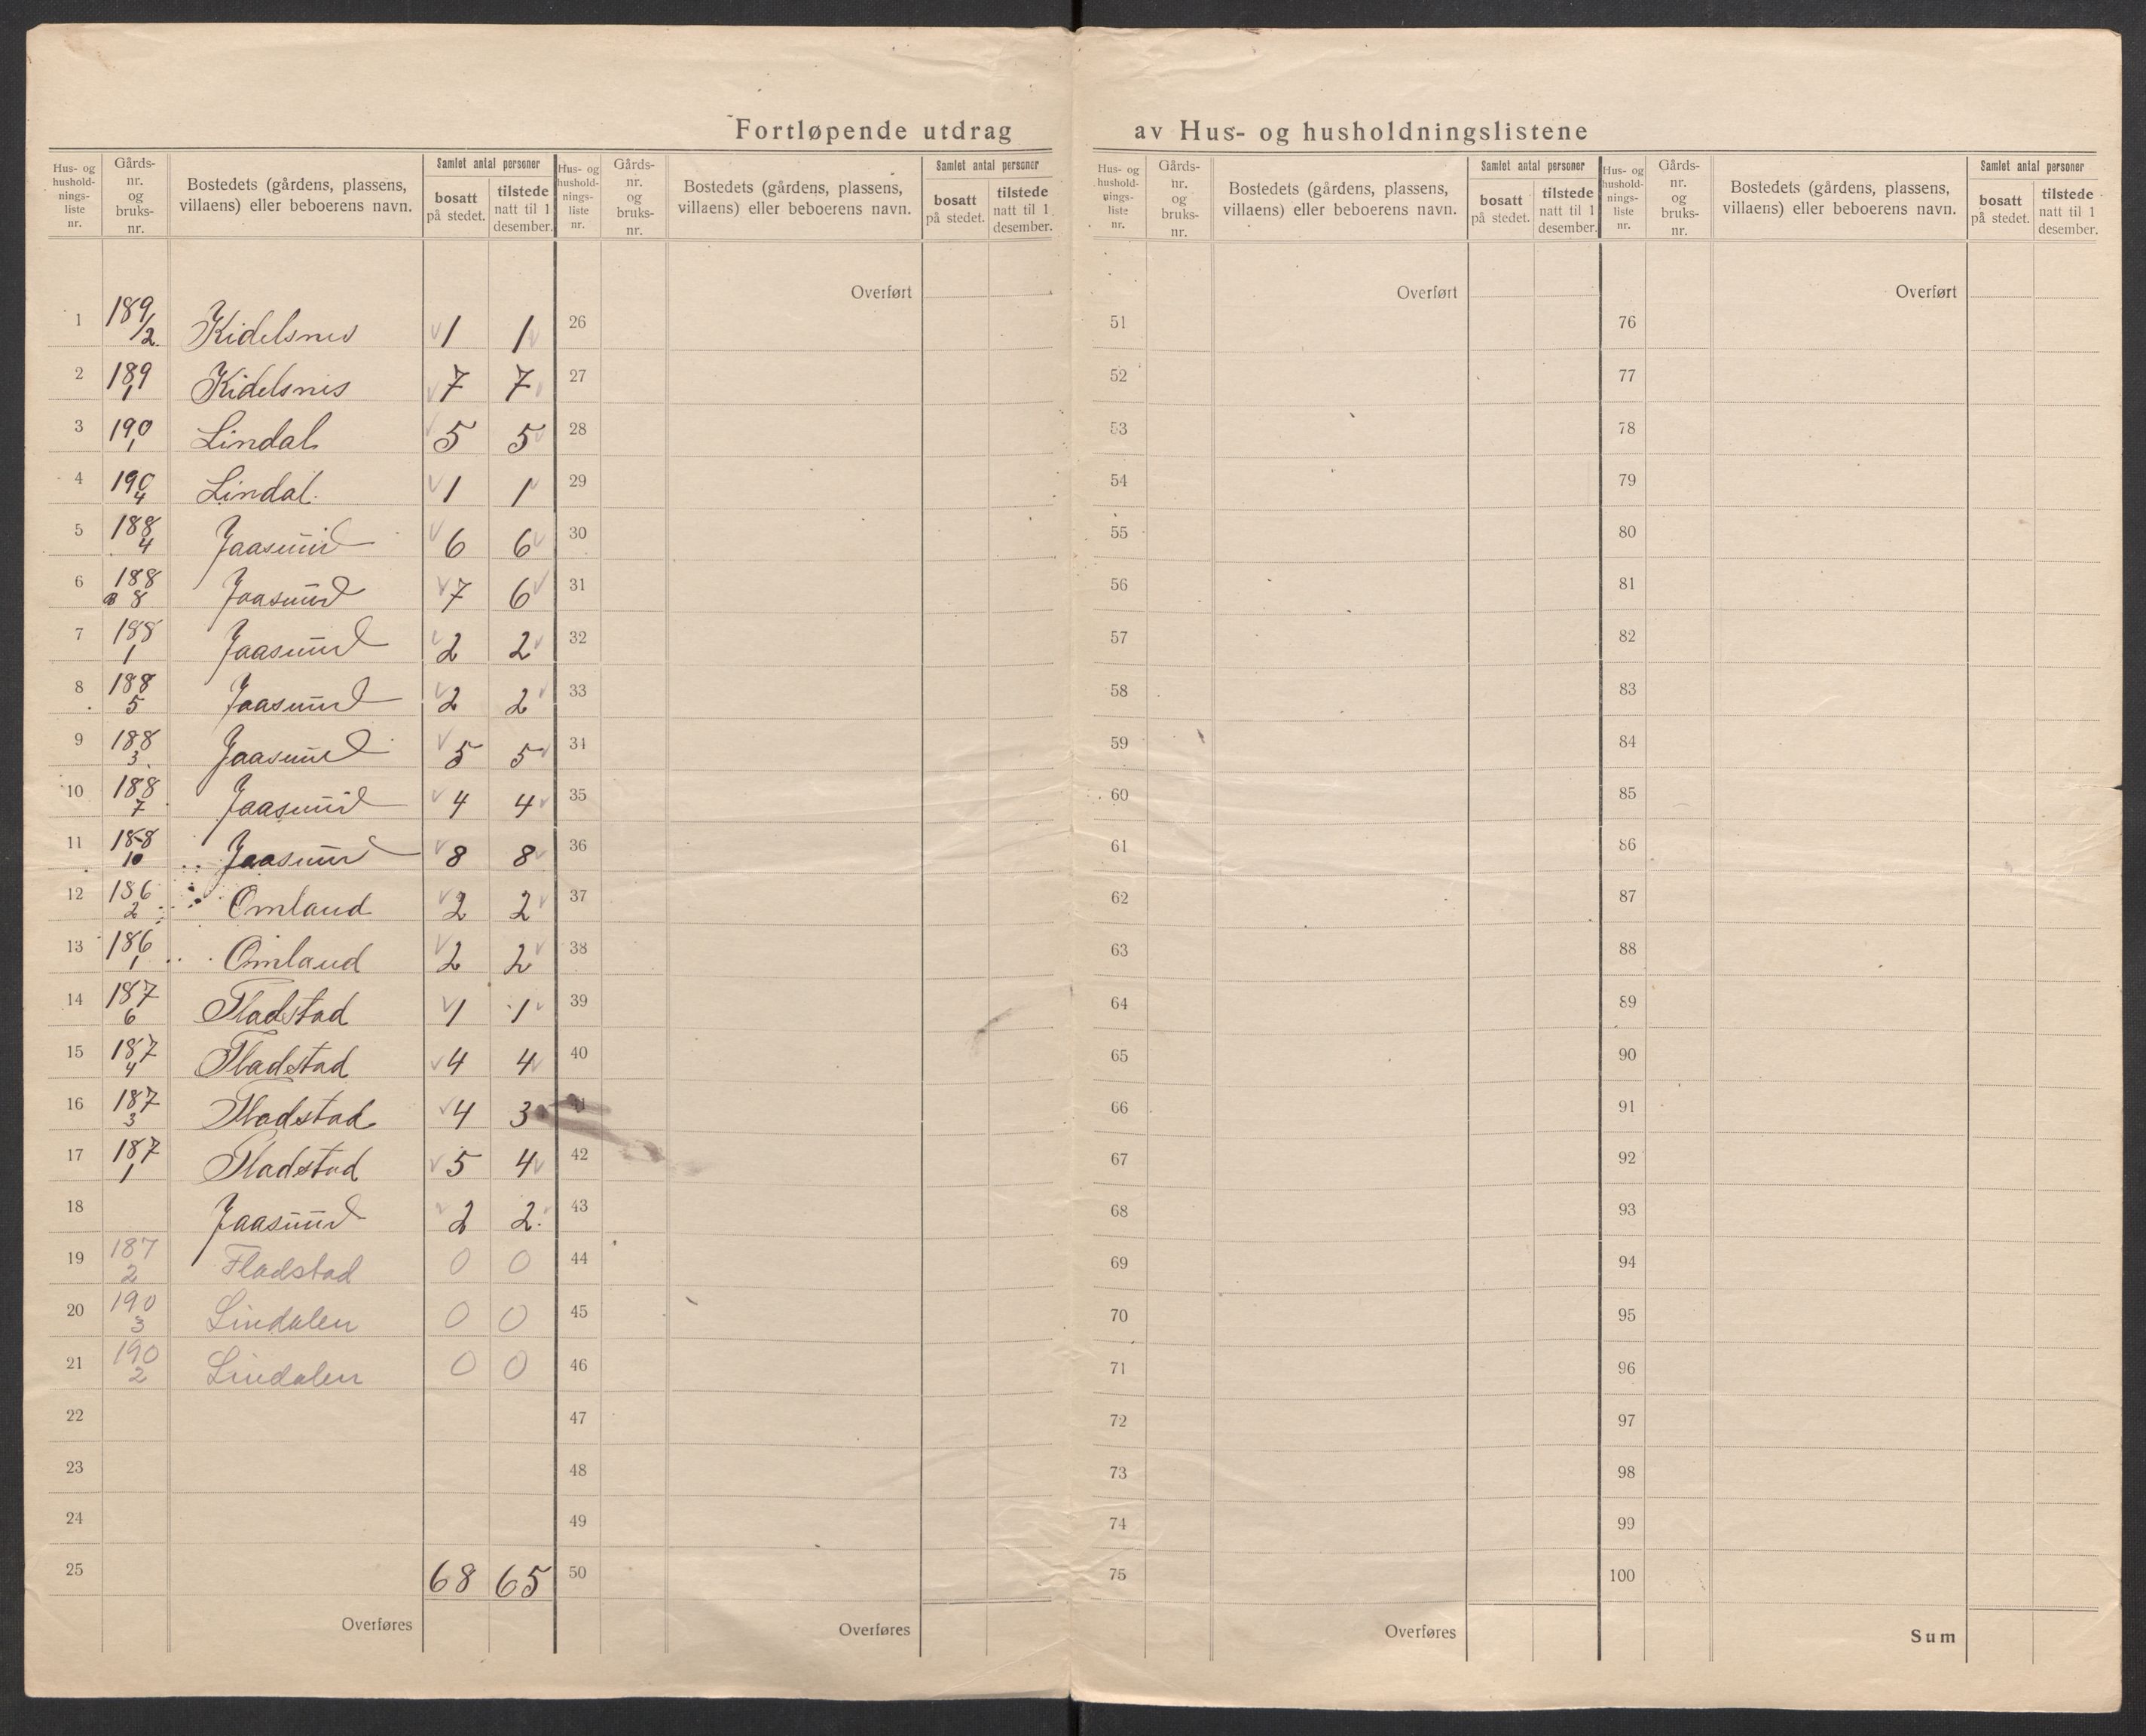 Fortløpende utdrag av Hus- og husholdningslistene
Hus- og hushold- nings- liste nr. | Gårds- nr. og bruks- nr. | Bostedets (gårdens, plassens, villaens) eller beboerens navn. | Samlet antal personer | bosatt på stedet. | tilstede natt til 1 desember.
1 189/2. Kidelsnes 1 1
2 189 1 Kidelsnes 7 7
3 190 1 Lindal 5 5
4 190 4 Lindal. 1 1
5 188 4 Jaasund 6 6
6 188 8 Jaasund 7 6
7 188 1 Jaasund 2 2
8 188 5 Jaasund 2 2
9 188 3. Jaasund 5 5
10 188 7 Jaasund 4 4
11 188 10 Jaasund 8 8
12 186 2 Omland 2 2
13 186 1 Omland 2 2
14 187 6 Fladstad 1 1
15 187 4 Fladstad 4 4
16 187 3 Fladstad 4 3
17 187 1 Fladstad 5 4
18 Jaasund 2 2.
19 187 2 Fladstad 0 0
20 190 3 Lindalen 0 0
21 190 2 Lindalen 0 0
22
23
24
25 68 65
Overføres
Hus- og hushold- nings- liste nr. | Gårds- nr. og bruks- nr. | Bostedets (gårdens, plassens, villaens) eller beboerens navn. | Samlet antal personer | bosatt på stedet. | tilstede natt til 1 desember.
Overført
26
27
28
29
30
31
32
33
34
35
36
37
38
39
40
41
42
43
44
45
46
47
48
49
50
Overføres
Hus- og hushold- nings- liste nr. | Gårds- nr. og bruks- nr. | Bostedets (gårdens, plassens, villaens) eller beboerens navn. | Samlet antal personer | bosatt på stedet. | tilstede natt til 1 desember.
Overført
51
52
53
54
55
56
57
58
59
60
61
62
63
64
65
66
67
68
69
70
71
72
73
74
75
Overføres
Hus- og hushold- nings- liste nr. | Gårds- nr. og bruks- nr. | Bostedets (gårdens, plassens, villaens) eller beboerens navn. | Samlet antal personer | bosatt på stedet. | tilstede natt til 1 desember.
Overført
76
77
78
79
80
81
82
83
84
85
86
87
88
89
90
91
92
93
94
95
96
97
98
99
100
Sum